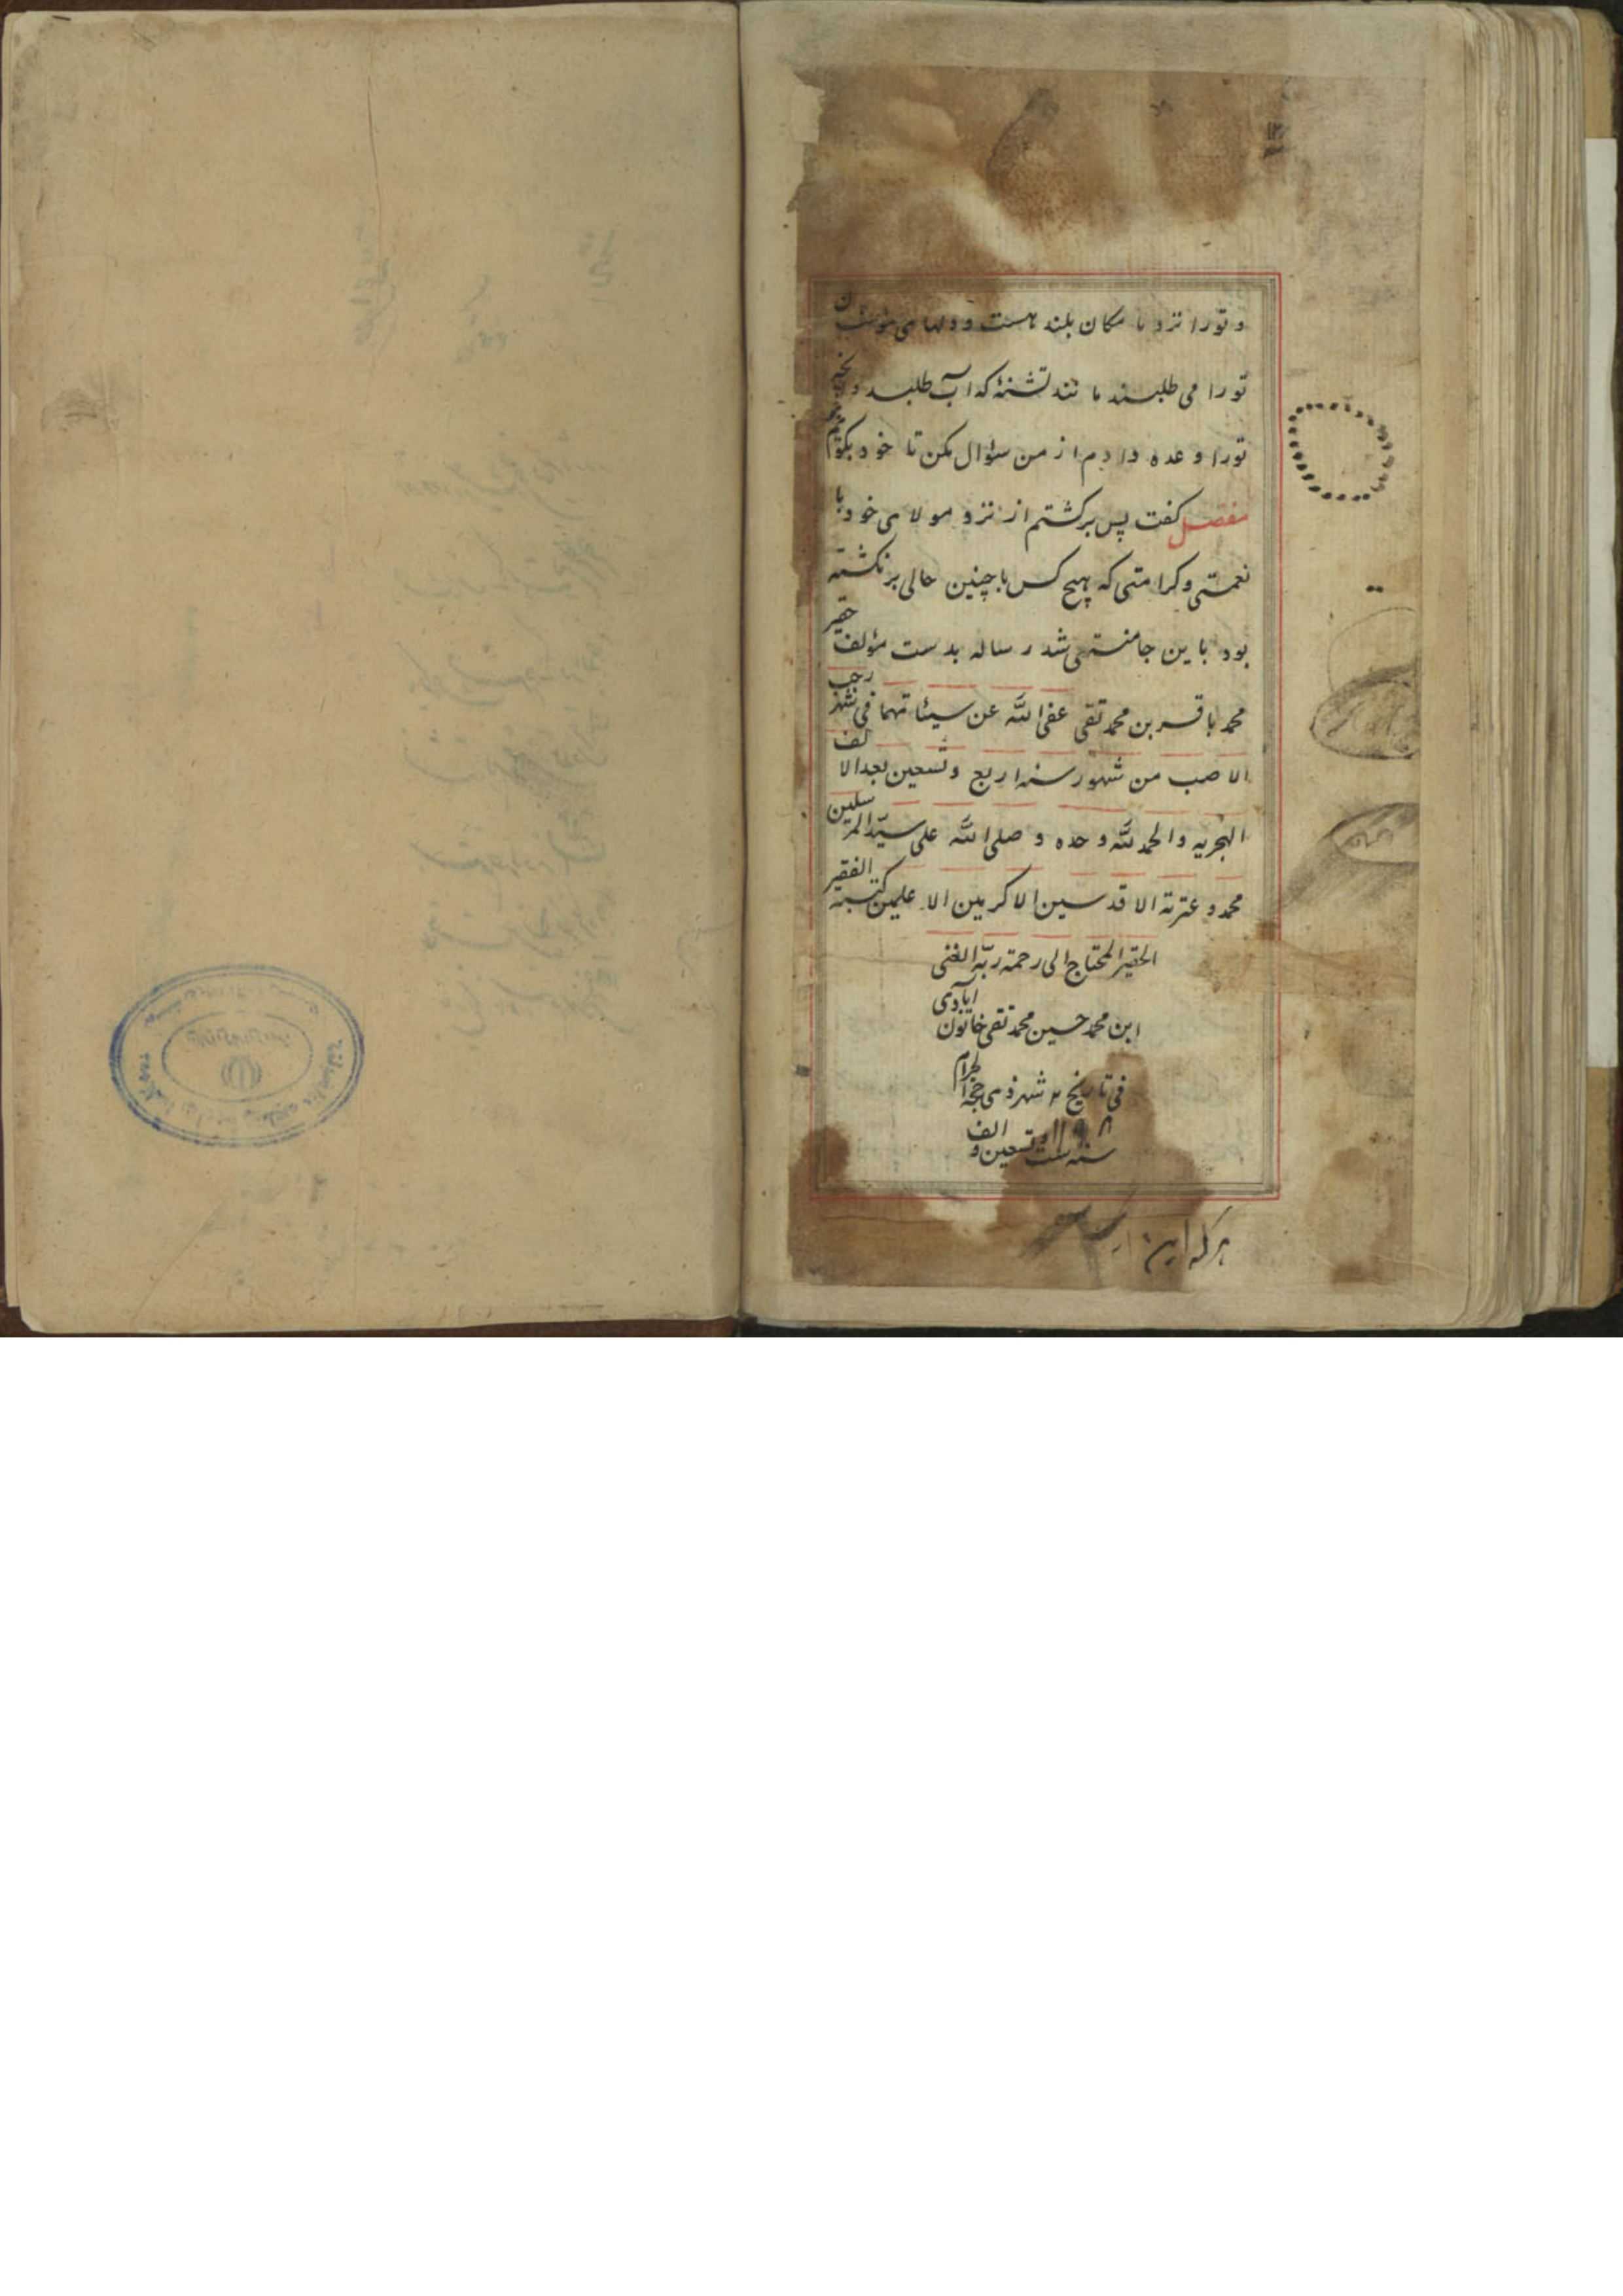 و تو را نزد ما مکان بلند هست و دلهای مؤمنان
تو را می طلبند مانند تشنۀ که آب طلبد و
تو را وعده دادم از من سؤال مکن تا خود بگویم
مفضل گفت پس برگشتم از نزد مولای خود با
نعمتی و کرامتی که هیچ کس با چنین حالی برنگشته
بود باین جا منتهی شد رساله بدست مؤلف حقیر
محمد باقر بن محمد تقی عفی الله عن سیئاتهما فی شهر رجب
الاصب من شهور سنه اربع و تسعین بعد الالف
الهجریه والحمد لله وحده و صلی الله علی سیّد المرسلین
محمد و عترته الاقدسین الاکرمین الا علمین کتبه الفقیر
الحقیر المحتاج الی رحمة ربّه الغنی
ابن محمد حسین محمد تقی خاتون آبادی
فی تاریخ شهر ذی حجة الحرام
سنه ست و تسعین و الف
هر که این